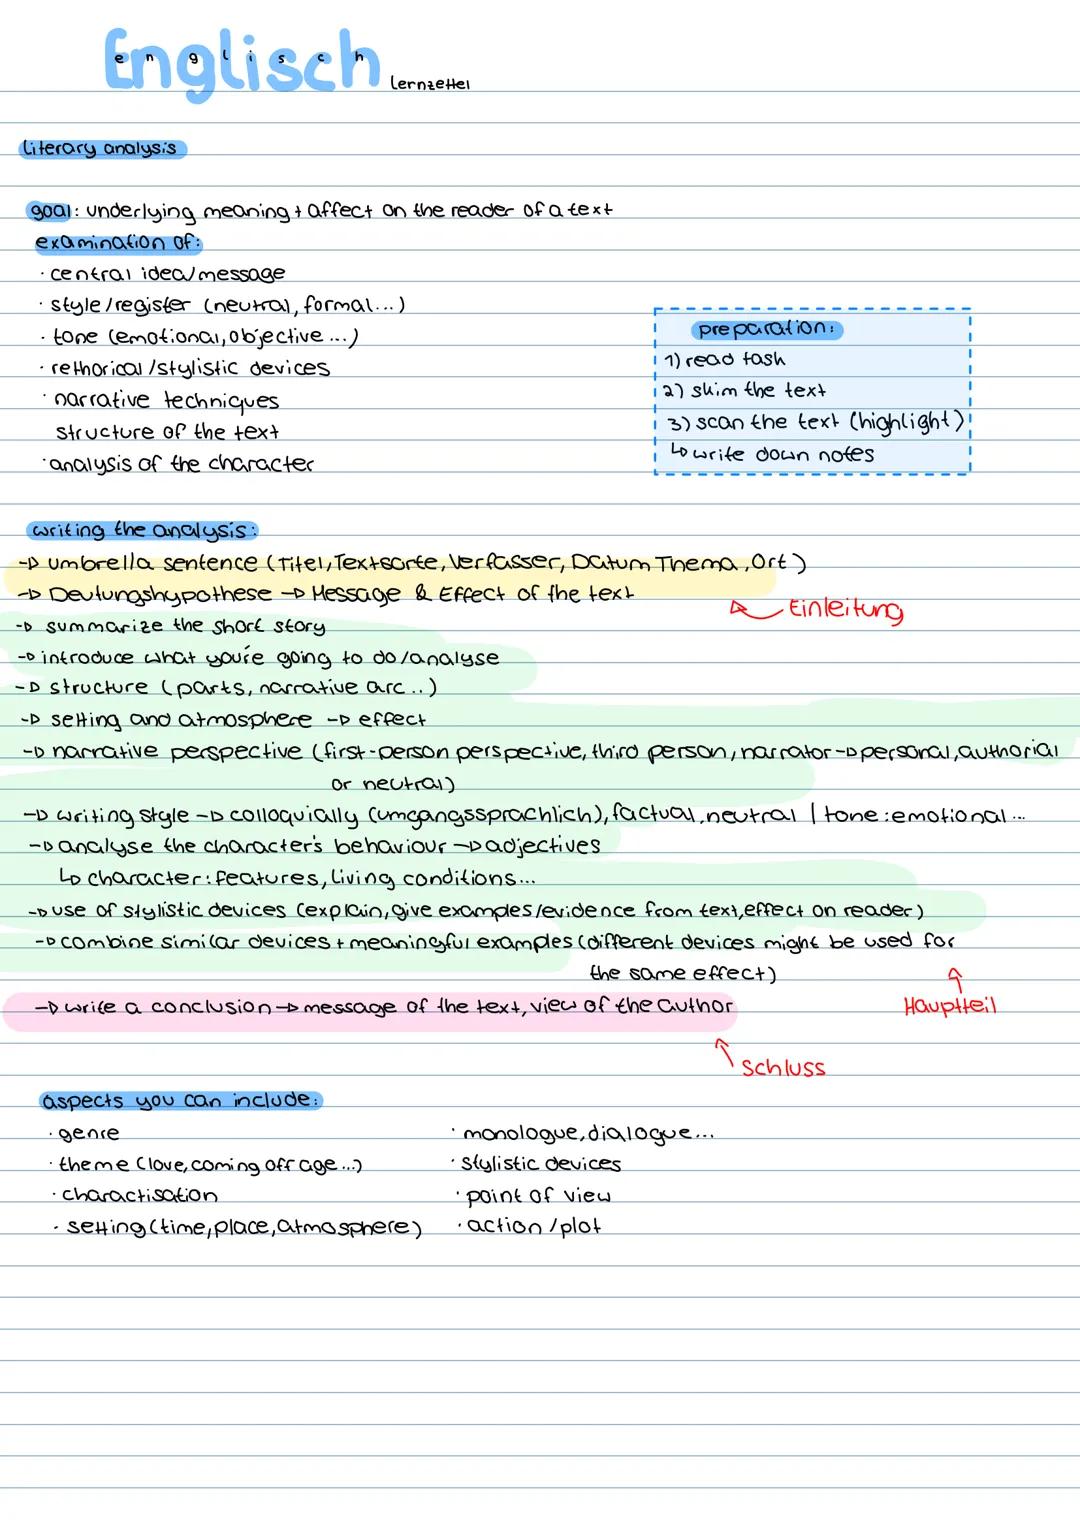 Englisch
e n g l i s c h
Lernzettel
Literary analysis
goal: underlying meaning + affect on the reader of a text
examination of:
· central idea/message
· style/register (neutral, formal...)
· tone (emotional, objective ...)
· rethorical/stylistic devices
· narrative techniques
structure of the text
· analysis of the character
preparation:
1) read task
2) skim the text
3) scan the text (highlight)
↳ write down notes
writing the analysis:
→ umbrella sentence (Titel, Textsorte, Verfasser, Datum Thema, Ort)
→ Deutungshypothese → Message & Effect of the text
Einleitung
→ summarize the short story
→ introduce what you're going to do/analyse
→ structure (parts, narrative arc..)
→ setting and atmosphere → effect
→ narrative perspective (first-person perspective, third person, narrator → personal, authorial
or neutral)
→ writing style → colloquially (umgangssprachlich), factual, neutral | tone: emotional...
→ analyse the character's behaviour → adjectives
↳ character: features, living conditions...
→ use of stylistic devices (explain, give examples/evidence from text, effect on reader)
→ combine similar devices + meaningful examples (different devices might be used for
the same effect)
Hauptteil
→ write a conclusion → message of the text, view of the author
Schluss
aspects you can include:
· genre
· theme (love, coming off age...)
· charactisation
· setting (time, place, atmosphere)
· monologue, dialogue...
· stylistic devices
· point of view
· action/plot